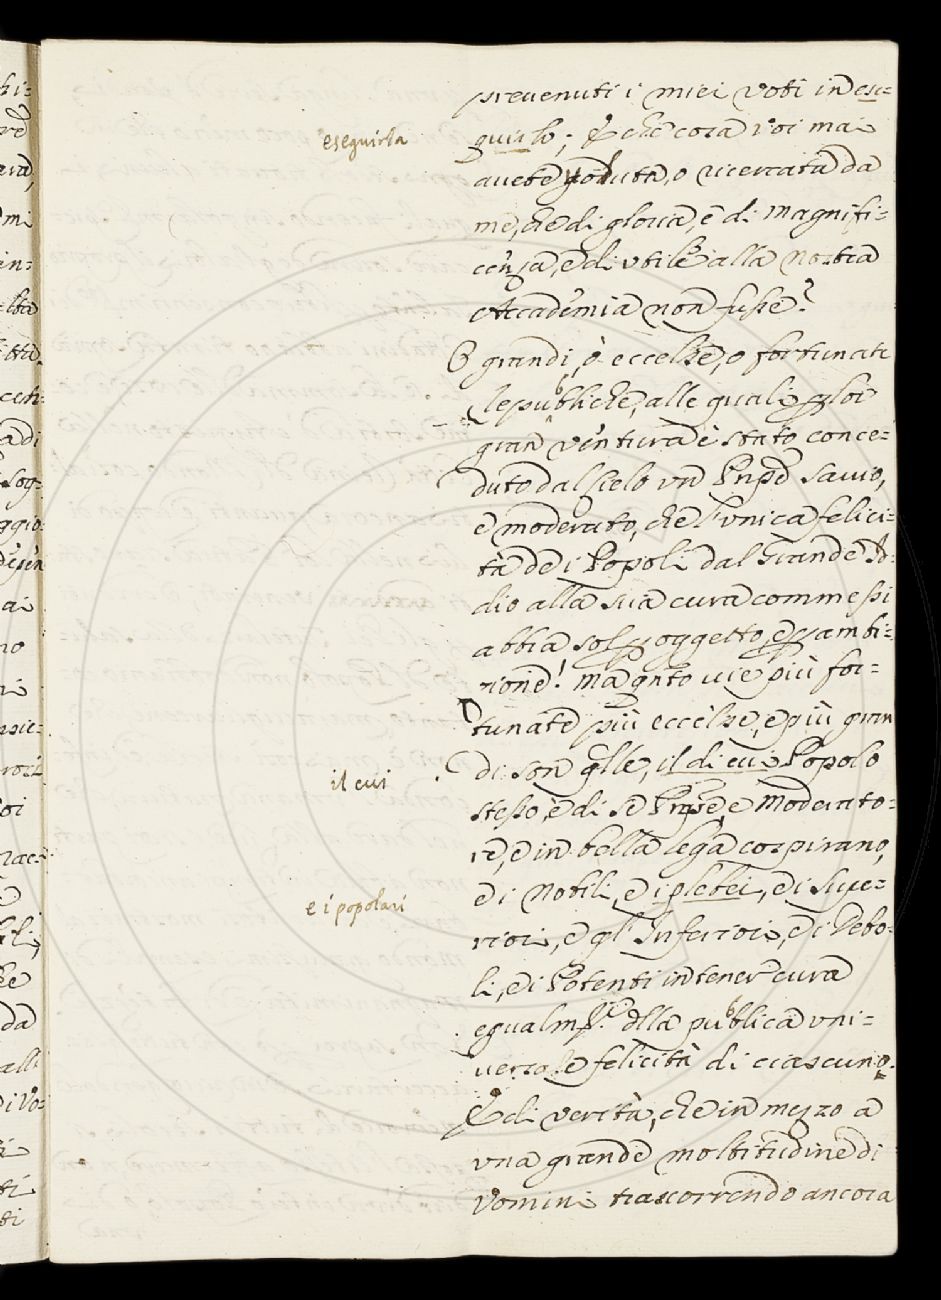 prevenuti i miei voti in ese=
eseguirla
guirlo; E che cosa voi mai
avete goduta, o ricercata da
me, che di gloria, e di magnifi=
cenza, e di utile alla nostra
Accademia non fusse?
O grandi, o eccelse, o fortunate
Republiche, alle quali per lor
gran ventura è stato conce=
duto dal Cielo un Prnpe Savio,
e moderato, che l'unica felici=
tà de i Popoli dal Grande Id=
dio alla sua cura commessi
abbia sol per oggetto, e per ambi=
zione! Ma qnto vie più for=
tunate più eccelse, e più gran
di son qlle, il di cui Popolo
il cui
stesso è di se Prnpe, e Moderato=
re, e in bella lega cospirano,
e i Nobili, e i plebei, e i Supe=
e i popolari
riori, e gl' Inferiori, e i Debo=
li, e i Potenti in tener cura
egualmte. dlla publica uni=
versale felicità di ciascuno.
E di verità, che in mezzo a
una grande moltitudine di
Uomini trascorrendo ancora
hi=
ara,
mi
in=
di
sog=
ggio=
ai
no
oi
da
alli
di Vo=